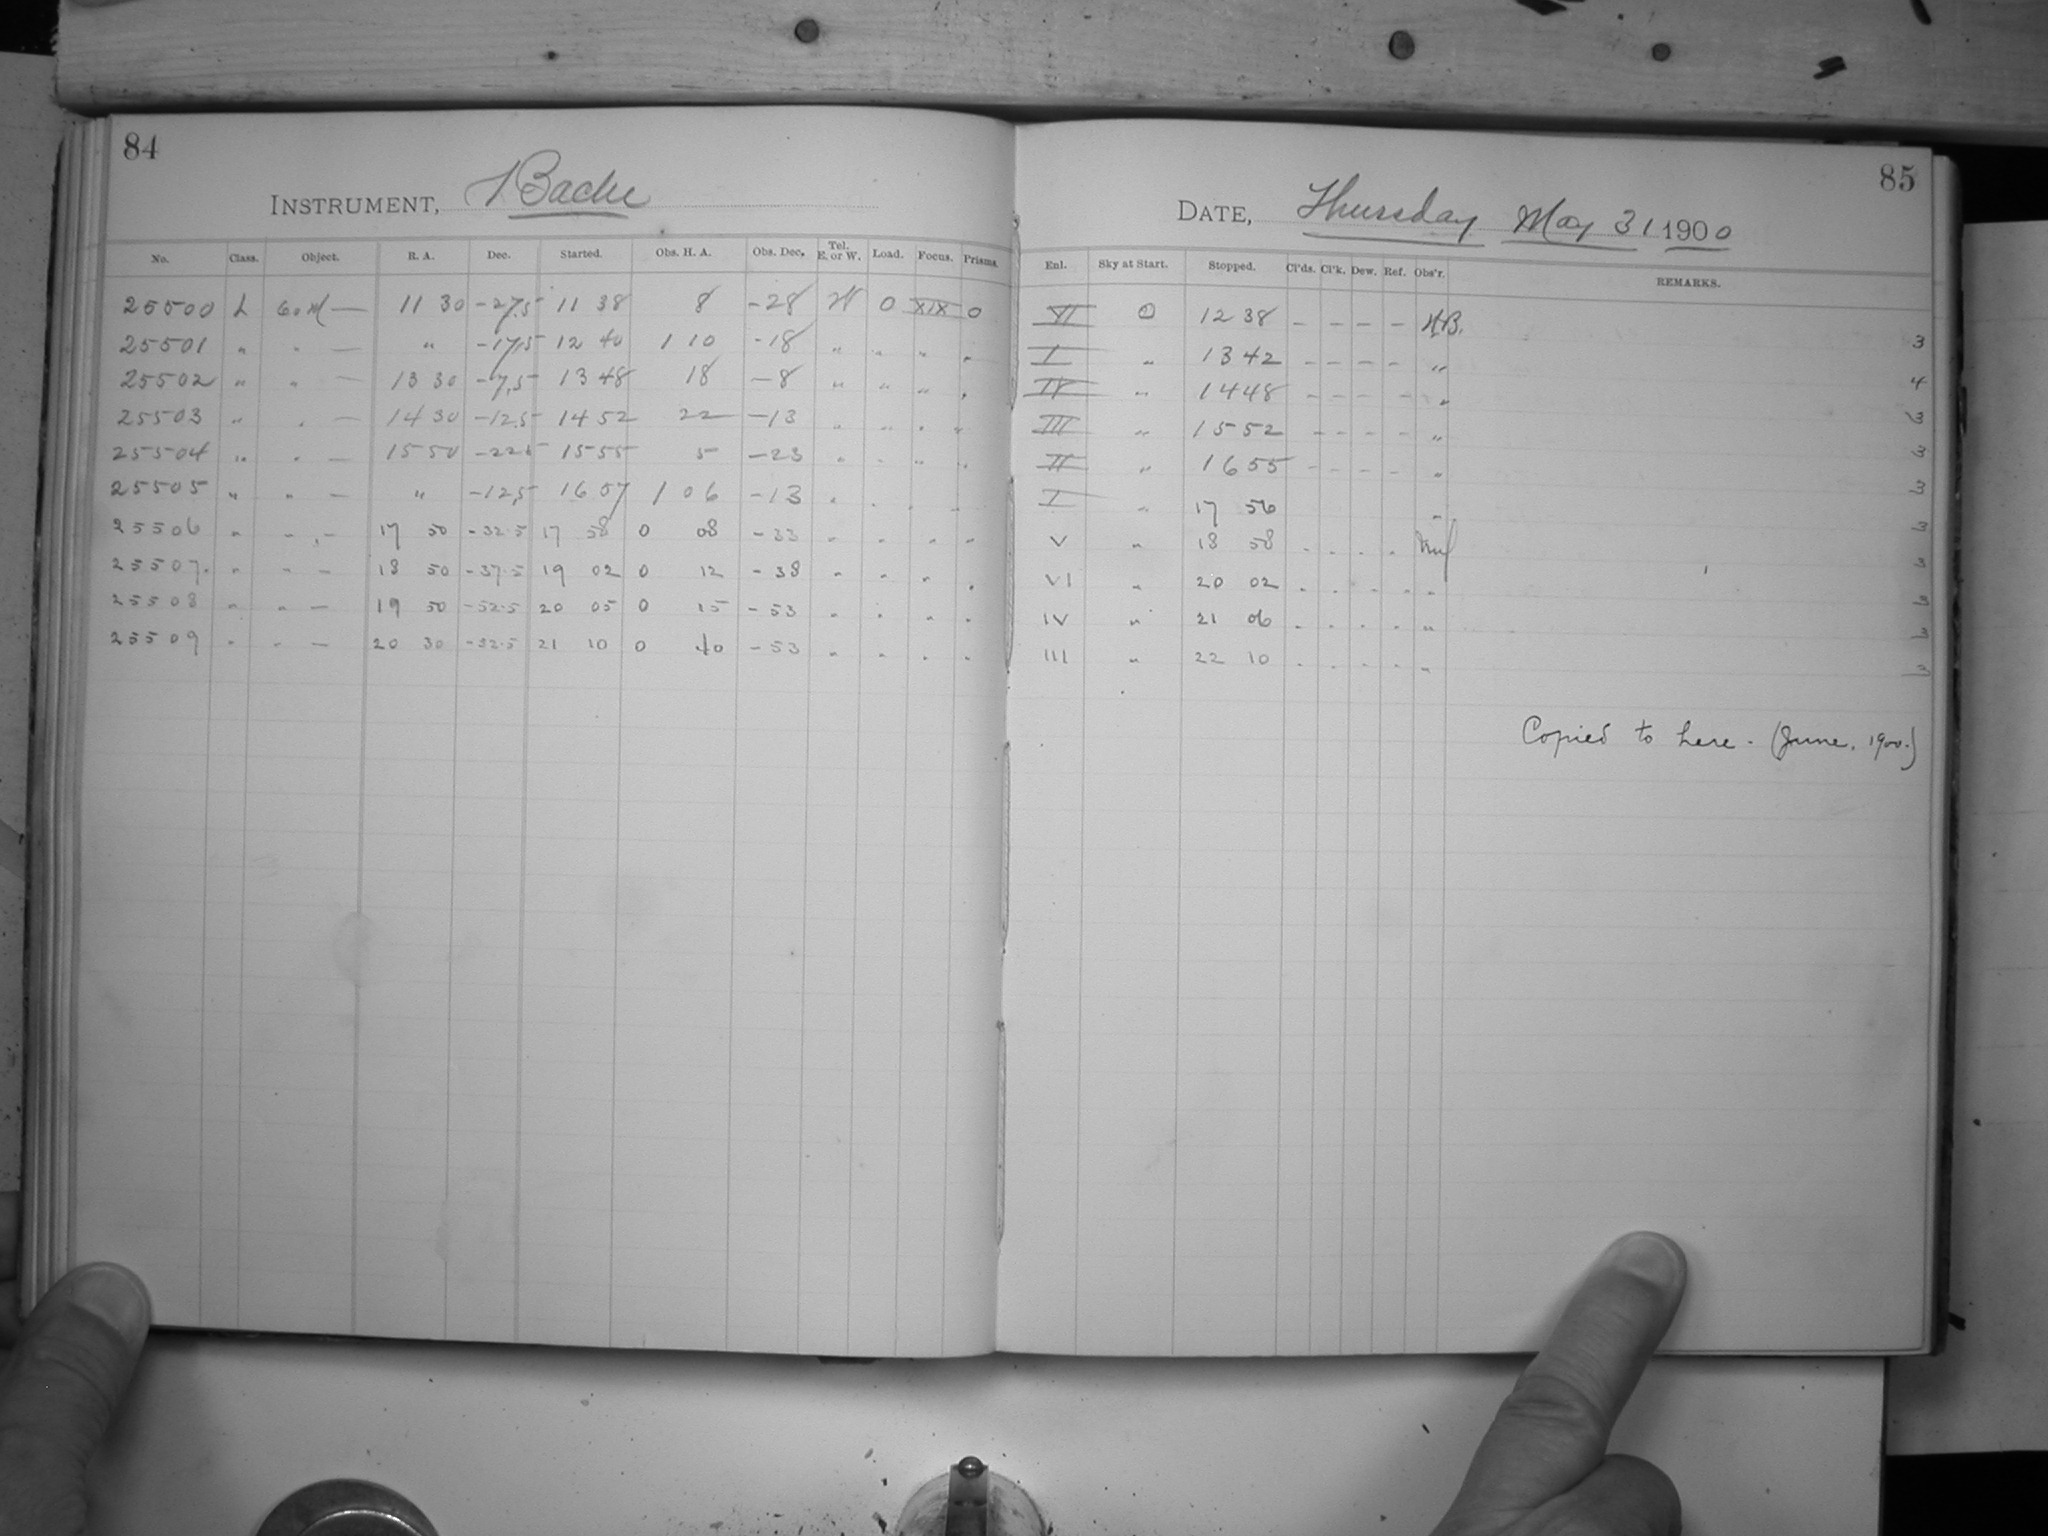 84
INSTRUMENT, Bache
No. Class. Object. R. A. Dec. Started. Obs. H. A. Obs. Dec. Tel. E. or W. Load. Focus. Prisms.
25500 L 60 M — 11 30 -27.5 11 38 8 -28 W 0 XIX 0
25501 " " — " -17.5 12 40 1 10 -18 " " " "
25502 " " — 13 30 -7.5 13 48 18 -8 " " " "
25503 " " — 14 30 -12.5 14 52 22 -13 " " " "
25504 " " — 15 50 -22.5 15 55 5 -23 " " " "
25505 " " — " -12.5 16 57 1 06 -13 " " " "
25506 " " — 17 50 -32.5 17 58 0 08 -33 " " " "
25507 " " — 18 50 -37.5 19 02 0 12 -38 " " " "
25508 " " — 19 50 -52.5 20 05 0 15 -53 " " " "
25509 " " — 20 30 -52.5 21 10 0 40 -53 " " " "
85
DATE, Thursday May 31 1900
Enl. Sky at Start. Stopped. Cl'ds. Cl'k. Dew. Ref. Obs'r. REMARKS.
VI 0 12 38 – – – – 3
I " 13 42 – – – – " 4
IV " 14 48 – – – – " 3
III " 15 52 – – – – " 3
II " 16 55 – – – – " 3
I " 17 56 " 3
V " 18 58 " " " " 3
VI " 20 02 " " " " " 3
IV " 21 06 " " " " " 3
III " 22 10 " " " " " 3
Copied to here. (June, 1900.)